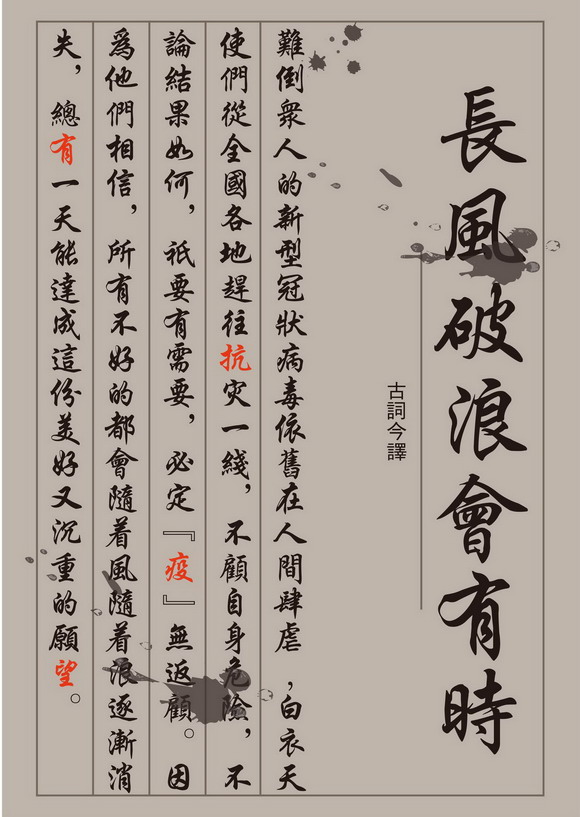 長風破浪會有時
古詞今譯
難倒衆人的新型冠狀病毒依舊在人間肆虐，白衣天
使們從全國各地趕往抗灾一綫，不顧自身危險，不
論結果如何，祇要有需要，必定『疫』無返顧。因
爲他們相信，所有不好的都會隨着風隨着浪逐漸消
失，總有一天能達成這份美好又沉重的願望。